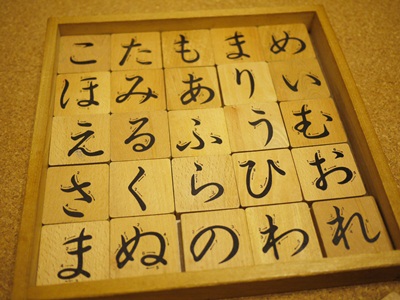 こたもまめ
ほみありい
えるふうむ
さくらひお
まぬのわれ